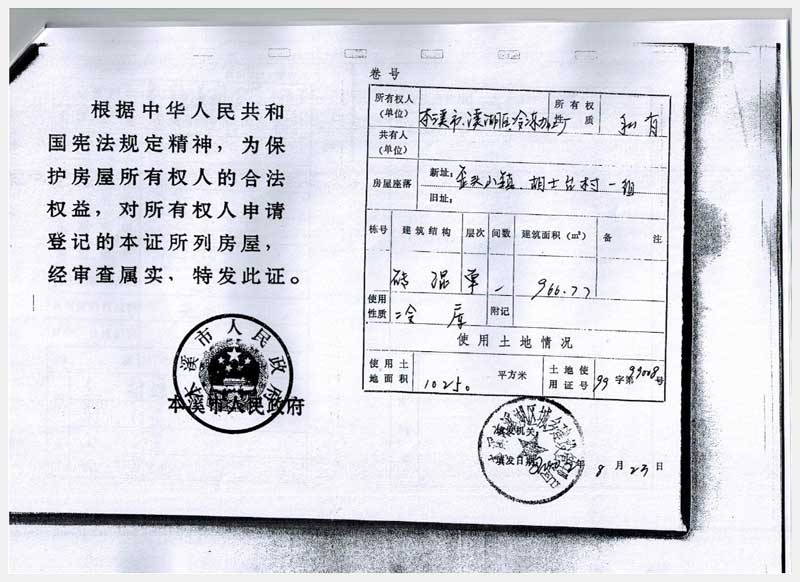 根据中华人民共和
国宪法规定精神，为保
护房屋所有权人的合法
权益，对所有权人申请
登记的本证所列房屋，
经审查属实，特发此证。
本溪市人民政府
本溪市人民政府
卷号
所有权人
(单位)
本溪市溪湖区冷冻加工厂
所有权
性质
私有
共有人
(单位)
房屋座落
新址:
歪头山镇 胡士台村一组
旧址:
栋号 建筑结构 层次 间数 建筑面积 (m²) 备注
砖混 单 一 966.77
使用
性质
冷库
附记
使用土地情况
使用土
地面积
1025.0
平方米
土地使
用证号
99 字第 99008 号
填发机关
填发日期
年 8 月 23 日